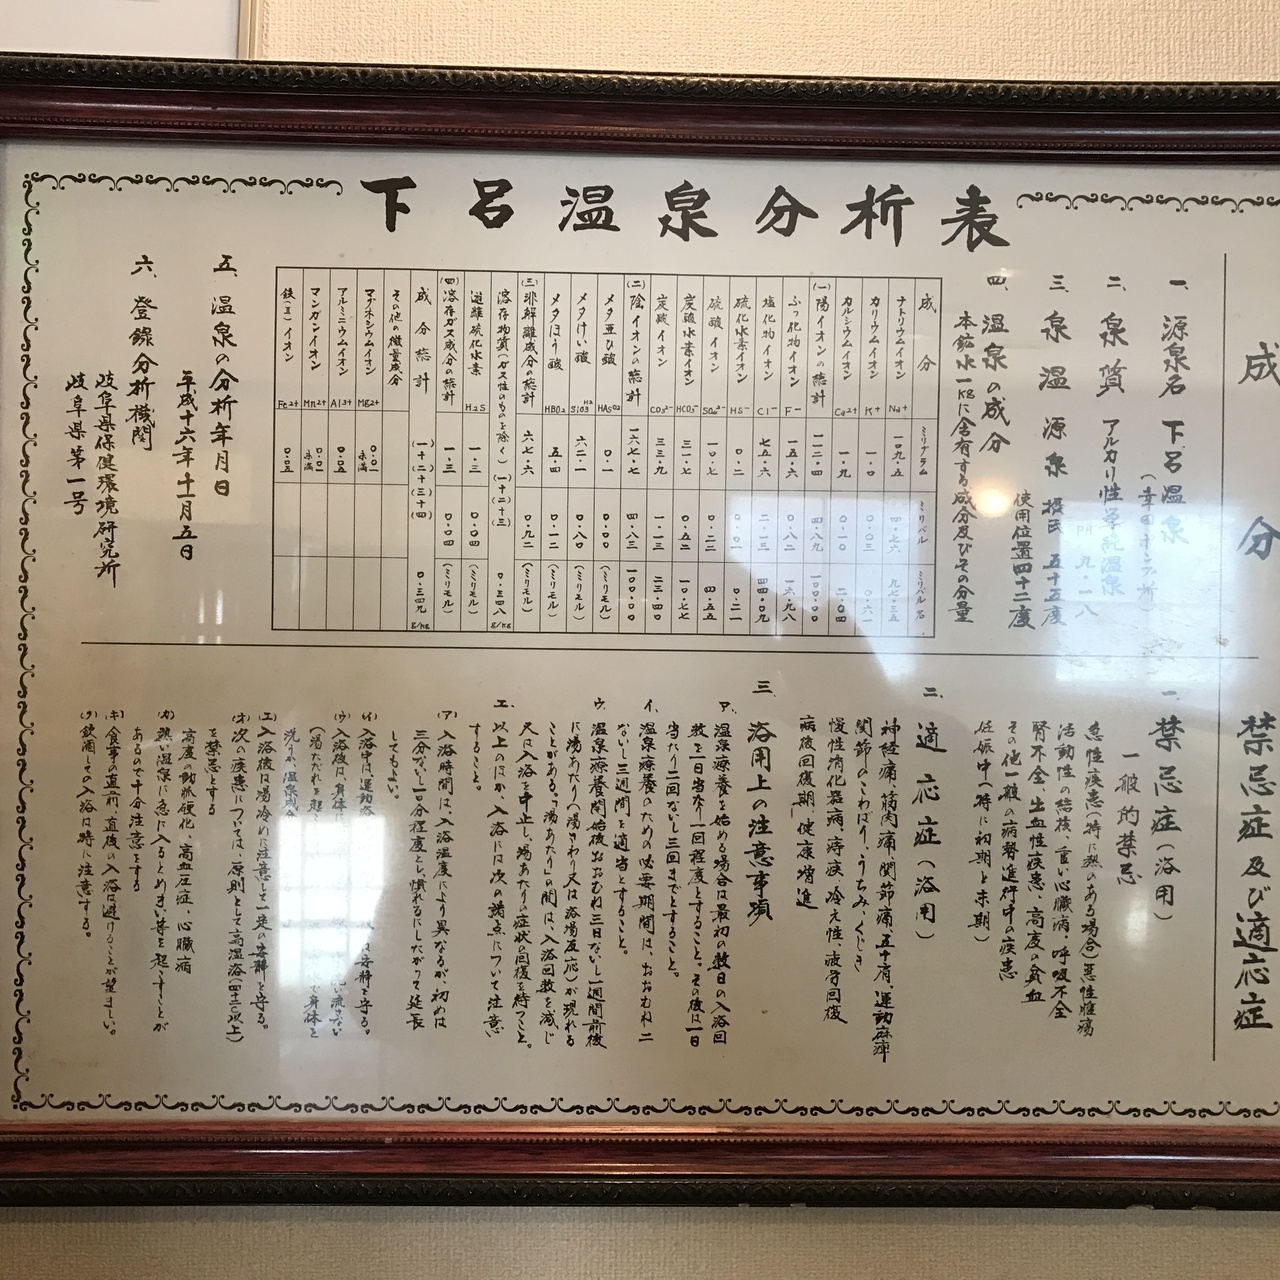 下呂温泉分析表
成分
禁忌症及び適応症
一、源泉名 下呂温泉
二、泉質 アルカリ性単純温泉
PH 九・一八
三、泉温 源泉 摂氏 五十五度
使用位置四十二度
四、温泉の成分
本鉱水一KGに含有する成分及びその分量
成分 ミリグラム ミリバル ミリバル%
ナトリウムイオン Na+ 一〇九・五 四・七六 九七・三五
カリウムイオン K+ 一・〇 〇・〇三 〇・六一
カルシウムイオン Ca2+ 一・九 〇・一〇 二・〇四
(一)陽イオンの総計 一一二・四 四・八九 一〇〇・〇〇
ふっ化物イオン F− 一五・六 〇・八二 一六・九八
塩化物イオン Cl− 七五・六 二・一三 四四・〇九
硫化水素イオン HS− 〇・二 〇・〇一 〇・二一
硫酸イオン SO₄2− 一〇・七 〇・二二 四・五五
炭酸水素イオン HCO₃− 三一・七 〇・五二 一〇・七七
炭酸イオン CO₃2− 三三・九 一・一三 二三・四〇
(二)陰イオンの総計 一六七・七 四・八三 一〇〇・〇〇
メタ亜ひ酸 HAsO2 〇・一 〇・〇〇 (ミリモル)
メタけい酸 H2SiO3 六二・一 〇・八〇 (ミリモル)
メタほう酸 HBO2 五・四 〇・一二 (ミリモル)
(三)非解離成分の総計 六七・六 〇・九二 (ミリモル)
溶存物質(ガス性のものを除く) (一)+(二)+(三) 〇・三四八 g/kg
遊離硫化水素 H2S 一・三 〇・〇四 (ミリモル)
(四)溶存ガス成分の総計 一・三 〇・〇四 (ミリモル)
成分総計 (一)+(二)+(三)+(四) 〇・三四九 g/kg
その他の微量成分
マグネシウムイオン Mg2+ 〇・〇一未満
アルミニウムイオン Al3+ 〇・〇五
マンガンイオン Mn2+ 〇・〇一未満
鉄(Ⅱ)イオン Fe2+ 〇・〇五
五、温泉の分析年月日
平成十六年十一月五日
六、登録分析機関
岐阜県保健環境研究所
岐阜県第一号
一、禁忌症(浴用)
一般的禁忌
急性疾患(特に熱のある場合)悪性腫瘍
活動性の結核、重い心臓病、呼吸不全
腎不全、出血性疾患、高度の貧血
その他一般の病勢進行中の疾患
妊娠中(特に初期と末期)
二、適応症(浴用)
神経痛、筋肉痛、関節痛、五十肩、運動麻痺
関節のこわばり、うちみ、くじき
慢性消化器病、痔疾、冷え性、疲労回復
病後回復期、健康増進
三、浴用上の注意事項
ア、温泉療養を始める場合は最初の数日の入浴回
数を一日当たり一回程度とすること。その後は一日
当たり二回ないし三回までとすること。
イ、温泉療養のための必要期間は、おおむね二
ないし三週間を適当とすること。
ウ、温泉療養開始後おおむね三日ないし一週間前後
に湯あたり(湯さわり又は浴場反応)が現れる
ことがある。「湯あたり」の間は、入浴回数を減じ
又は入浴を中止し、湯あたりの症状の回復を待つこと。
エ、以上のほか、入浴には次の諸点について注意
すること。
(ア)入浴時間は、入浴温度により異なるが、初めは
三分ないし一〇分程度とし、慣れるにしたがって延長
してもよい。
(イ)入浴中は運動浴 は安静を守る。
(ウ)入浴後は、身体に い流さない
(湯ただれを起し で身体を
洗うか、温泉成分
(エ)入浴後は湯冷めに注意して一定の安静を守る。
(オ)次の疾患については、原則として高温浴(四十二℃以上)
を禁忌とする
高度の動脈硬化、高血圧症、心臓病
(カ)熱い温泉に急に入るとめまい等を起こすことが
あるので十分注意をする
(キ)食事の直前、直後の入浴は避けることが望ましい。
(ク)飲酒しての入浴は特に注意する。